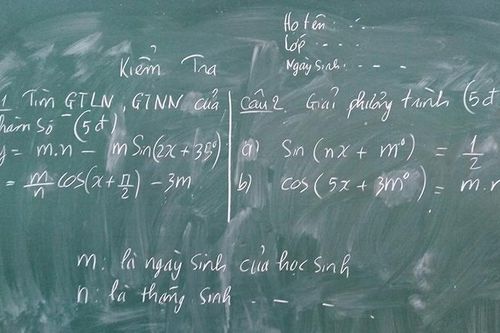 Họ tên: . . .
Lớp . - - .
Ngày sinh: - - -
Kiểm Tra
1 Tìm GTLN, GTNN của
hàm số (5đ)
y = m.n - m Sin(2x + 35°)
= m/n cos(x + π/2) - 3m
Câu 2. Giải phương trình (5đ
a) Sin (nx + m°) = 1/2
b) cos (5x + 3m°) = m.n
m: là ngày sinh của học sinh
n: là tháng sinh . - - -